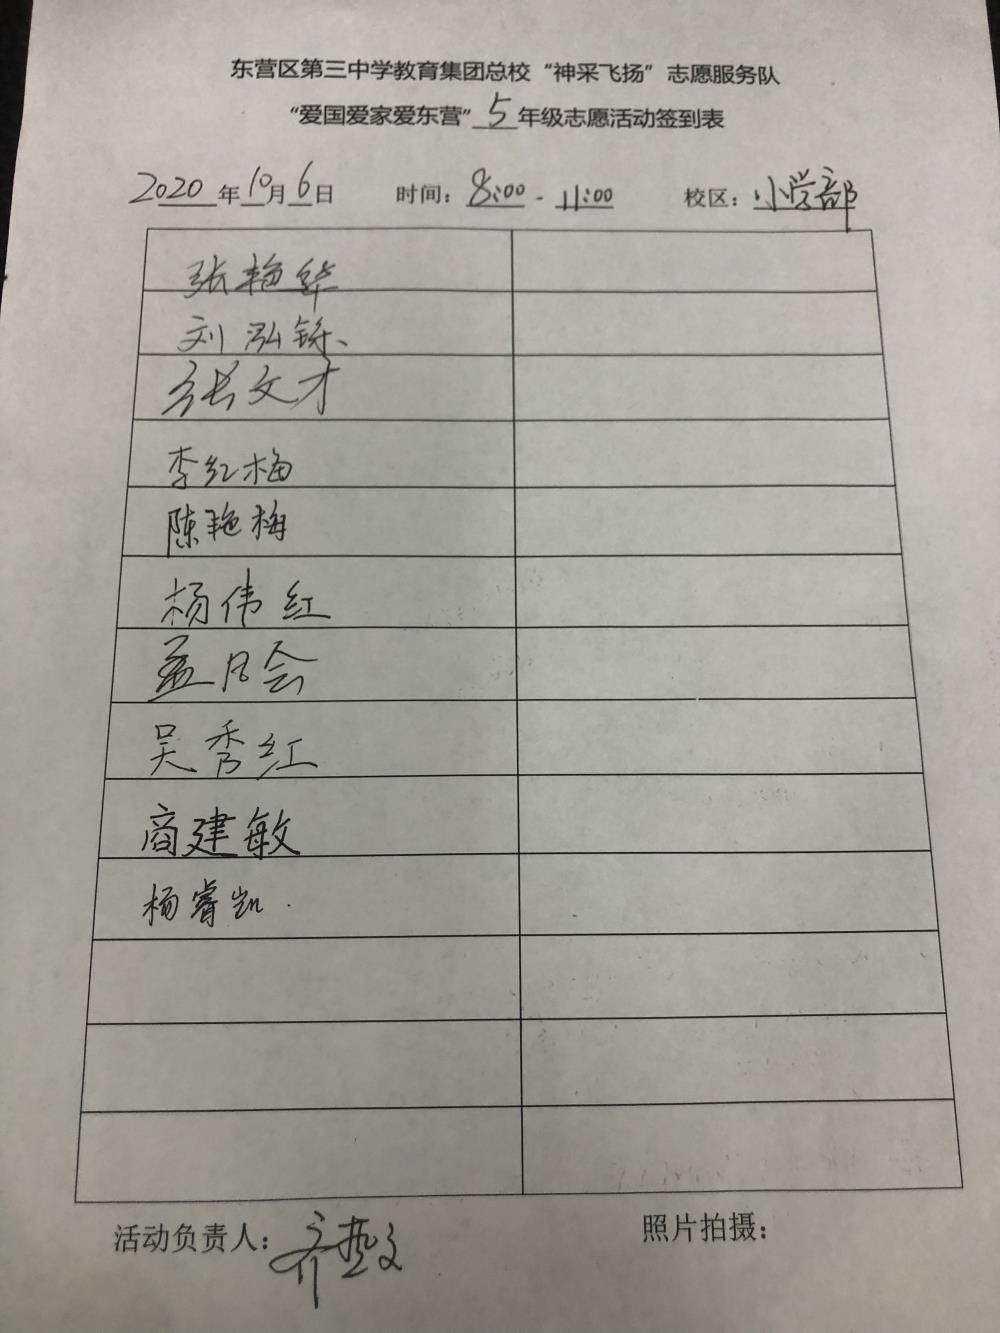 东营区第三中学教育集团总校“神采飞扬”志愿服务队
“爱国爱家爱东营”5年级志愿活动签到表
2020年10月6日 时间：8:00-11:00 校区：小学部
张艳华
刘泓铄
张文才
李红梅
陈艳梅
杨伟红
孟凡会
吴秀红
商建敏
杨睿凯
活动负责人： 照片拍摄：